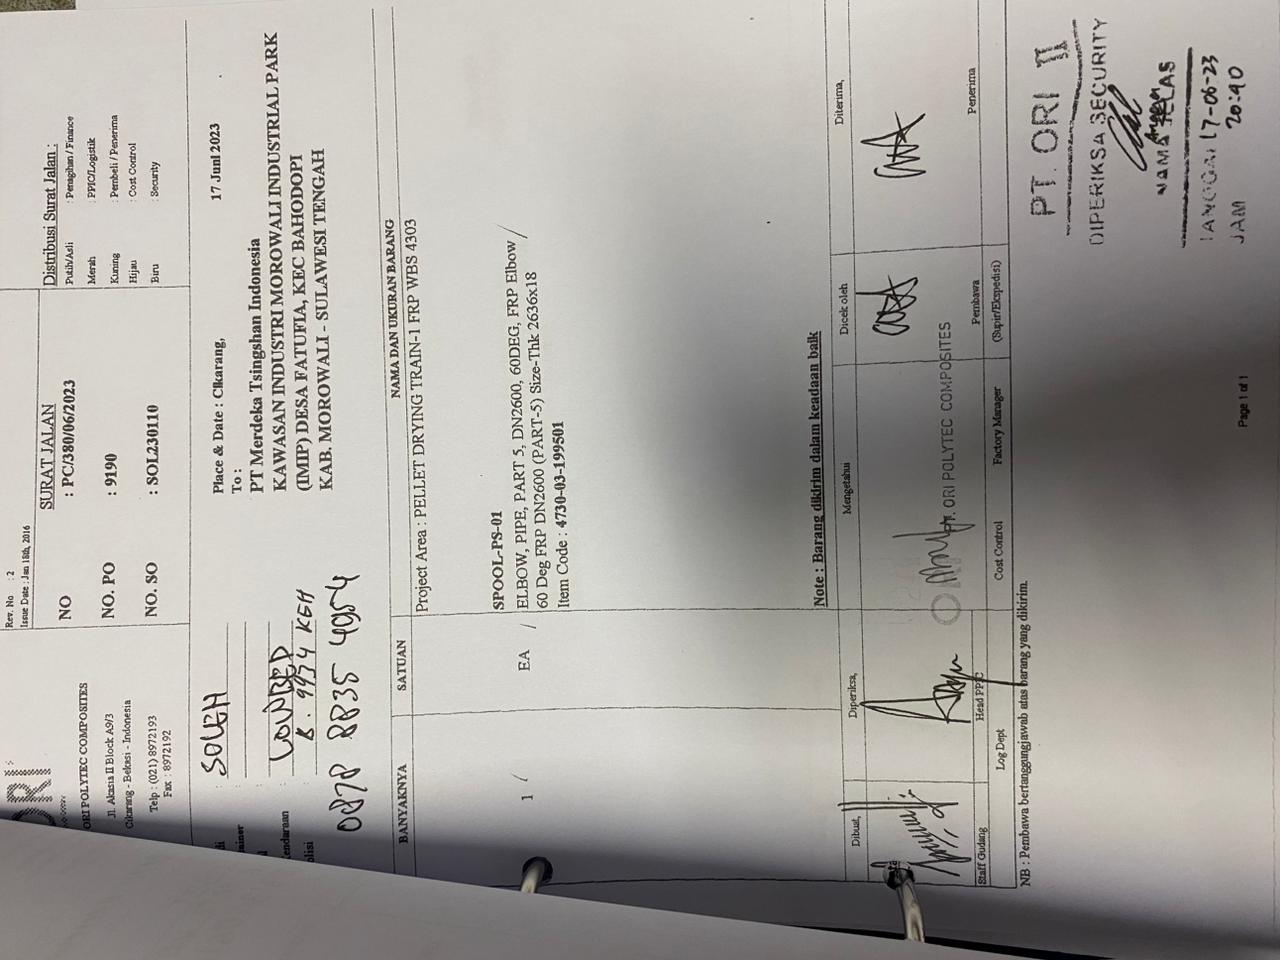 Rev. No : 2
Issue Date : Jan 18th, 2016
ORI
ORI POLYTEC COMPOSITES
Jl. Akasia II Block A9/3
Cikarang - Bekasi - Indonesia
Telp : (021) 8972193
Fax : 8972192
SURAT JALAN
NO : PC/380/06/2023
NO. PO : 9190
NO. SO : SOL230110
Distribusi Surat Jalan :
Putih/Asli : Penagihan / Finance
Merah : PPIC/Logistik
Kuning : Pembeli / Penerima
Hijau : Cost Control
Biru : Security
: SOLEH
:
: LOWBED
: B. 9974 KEH
0878 8835 4954
Place & Date : Cikarang, 17 Juni 2023
To :
PT Merdeka Tsingshan Indonesia
KAWASAN INDUSTRI MOROWALI INDUSTRIAL PARK
(IMIP) DESA FATUFIA, KEC BAHODOPI
KAB. MOROWALI - SULAWESI TENGAH
BANYAKNYA SATUAN NAMA DAN UKURAN BARANG
Project Area : PELLET DRYING TRAIN-1 FRP WBS 4303
SPOOL-PS-01
1 / EA / ELBOW, PIPE, PART 5, DN2600, 60DEG, FRP Elbow /
60 Deg FRP DN2600 (PART-5) Size-Thk 2636x18
Item Code : 4730-03-199501
Note : Barang dikirim dalam keadaan baik
Dibuat, Diperiksa, Mengetahui Dicek oleh Diterima,
PT. ORI POLYTEC COMPOSITES
Staff Gudang Head PPIC Pembawa Penerima
Log Dept Cost Control Factory Manager (Supir/Ekspedisi)
NB : Pembawa bertanggungjawab atas barang yang dikirim.
PT. ORI II
DIPERIKSA SECURITY
NAMA JELAS
TANGGAL 17-06-23
JAM 20:40
Page 1 of 1